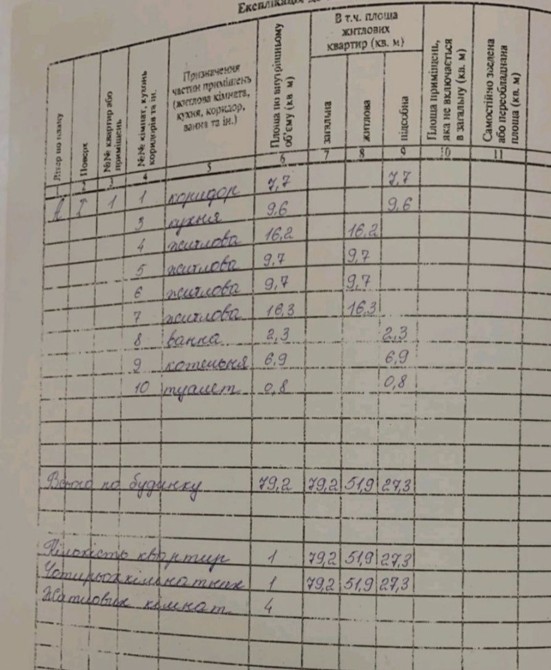 Експлікація
Літер на плану
Поверх
№№ квартир або приміщень
№№ кімнат, кухень коридорів та ін.
Призначення частин приміщень (житлова кімната, кухня, коридор, ванна та ін.)
Площа по внутрішньому об'єму (кв. м)
В т.ч. площа житлових квартир (кв. м)
загальна
житлова
підсобна
Площа приміщень, яка не включається в загальну (кв. м)
Самостійно зведена або переобладнана площа (кв. м)
1 2 3 4 5 6 7 8 9 10 11
1 1 коридор 7,7 7,7
3 кухня 9,6 9,6
4 житлова 16,2 16,2
5 житлова 9,7 9,7
6 житлова 9,7 9,7
7 житлова 16,3 16,3
8 ванна 2,3 2,3
9 котельня 6,9 6,9
10 туалет 0,8 0,8
Всього по будинку 79,2 79,2 51,9 27,3
Кількість квартир 1 79,2 51,9 27,3
Чотирьохкімнатних 1 79,2 51,9 27,3
Житлових кімнат 4